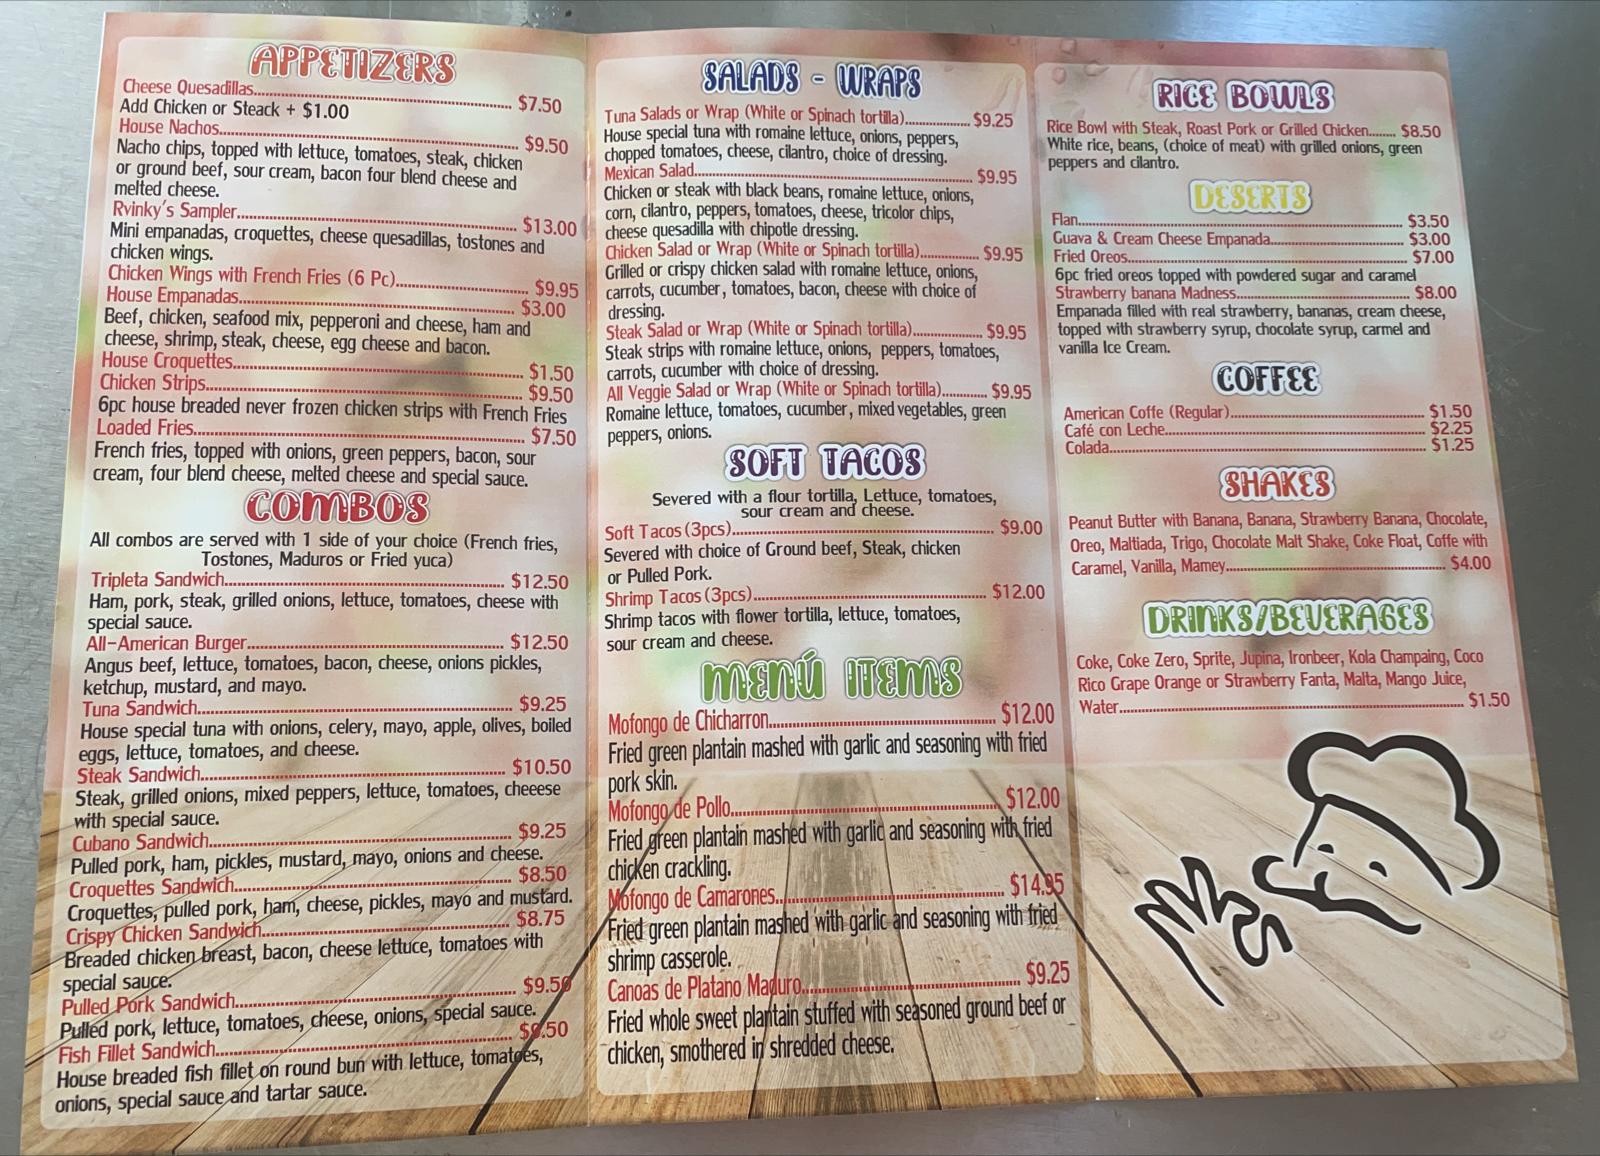 APPETIZERS
Cheese Quesadillas.......... $7.50
Add Chicken or Steack + $1.00
House Nachos.......... $9.50
Nacho chips, topped with lettuce, tomatoes, steak, chicken
or ground beef, sour cream, bacon four blend cheese and
melted cheese.
Rvinky's Sampler.......... $13.00
Mini empanadas, croquettes, cheese quesadillas, tostones and
chicken wings.
Chicken Wings with French Fries (6 Pc).......... $9.95
House Empanadas.......... $3.00
Beef, chicken, seafood mix, pepperoni and cheese, ham and
cheese, shrimp, steak, cheese, egg cheese and bacon.
House Croquettes.......... $1.50
Chicken Strips.......... $9.50
6pc house breaded never frozen chicken strips with French Fries
Loaded Fries.......... $7.50
French fries, topped with onions, green peppers, bacon, sour
cream, four blend cheese, melted cheese and special sauce.
COMBOS
All combos are served with 1 side of your choice (French fries,
Tostones, Maduros or Fried yuca)
Tripleta Sandwich.......... $12.50
Ham, pork, steak, grilled onions, lettuce, tomatoes, cheese with
special sauce.
All-American Burger.......... $12.50
Angus beef, lettuce, tomatoes, bacon, cheese, onions pickles,
ketchup, mustard, and mayo.
Tuna Sandwich.......... $9.25
House special tuna with onions, celery, mayo, apple, olives, boiled
eggs, lettuce, tomatoes, and cheese.
Steak Sandwich.......... $10.50
Steak, grilled onions, mixed peppers, lettuce, tomatoes, cheeese
with special sauce.
Cubano Sandwich.......... $9.25
Pulled pork, ham, pickles, mustard, mayo, onions and cheese.
Croquettes Sandwich.......... $8.50
Croquettes, pulled pork, ham, cheese, pickles, mayo and mustard.
Crispy Chicken Sandwich.......... $8.75
Breaded chicken breast, bacon, cheese lettuce, tomatoes with
special sauce.
Pulled Pork Sandwich.......... $9.50
Pulled pork, lettuce, tomatoes, cheese, onions, special sauce.
Fish Fillet Sandwich..........
House breaded fish fillet on round bun with lettuce, tomatoes,
onions, special sauce and tartar sauce.
SALADS - WRAPS
Tuna Salads or Wrap (White or Spinach tortilla).......... $9.25
House special tuna with romaine lettuce, onions, peppers,
chopped tomatoes, cheese, cilantro, choice of dressing.
Mexican Salad.......... $9.95
Chicken or steak with black beans, romaine lettuce, onions,
corn, cilantro, peppers, tomatoes, cheese, tricolor chips,
cheese quesadilla with chipotle dressing.
Chicken Salad or Wrap (White or Spinach tortilla).......... $9.95
Grilled or crispy chicken salad with romaine lettuce, onions,
carrots, cucumber, tomatoes, bacon, cheese with choice of
dressing.
Steak Salad or Wrap (White or Spinach tortilla).......... $9.95
Steak strips with romaine lettuce, onions, peppers, tomatoes,
carrots, cucumber with choice of dressing.
All Veggie Salad or Wrap (White or Spinach tortilla).......... $9.95
Romaine lettuce, tomatoes, cucumber, mixed vegetables, green
peppers, onions.
SOFT TACOS
Severed with a flour tortilla, Lettuce, tomatoes,
sour cream and cheese.
Soft Tacos (3pcs).......... $9.00
Severed with choice of Ground beef, Steak, chicken
or Pulled Pork.
Shrimp Tacos (3pcs).......... $12.00
Shrimp tacos with flower tortilla, lettuce, tomatoes,
sour cream and cheese.
MENÚ ITEMS
Mofongo de Chicharron.......... $12.00
Fried green plantain mashed with garlic and seasoning with fried
pork skin.
Mofongo de Pollo.......... $12.00
Fried green plantain mashed with garlic and seasoning with fried
chicken crackling.
Mofongo de Camarones.......... $14.95
Fried green plantain mashed with garlic and seasoning with fried
shrimp casserole.
Canoas de Platano Maduro.......... $9.25
Fried whole sweet plantain stuffed with seasoned ground beef or
chicken, smothered in shredded cheese.
RICE BOWLS
Rice Bowl with Steak, Roast Pork or Grilled Chicken....... $8.50
White rice, beans, (choice of meat) with grilled onions, green
peppers and cilantro.
DESERTS
Flan.......... $3.50
Guava & Cream Cheese Empanada.......... $3.00
Fried Oreos.......... $7.00
6pc fried oreos topped with powdered sugar and caramel
Strawberry banana Madness.......... $8.00
Empanada filled with real strawberry, bananas, cream cheese,
topped with strawberry syrup, chocolate syrup, carmel and
vanilla Ice Cream.
COFFEE
American Coffe (Regular).......... $1.50
Café con Leche.......... $2.25
Colada.......... $1.25
SHAKES
Peanut Butter with Banana, Banana, Strawberry Banana, Chocolate,
Oreo, Maltiada, Trigo, Chocolate Malt Shake, Coke Float, Coffe with
Caramel, Vanilla, Mamey.......... $4.00
DRINKS/BEVERAGES
Coke, Coke Zero, Sprite, Jupina, Ironbeer, Kola Champaing, Coco
Rico Grape Orange or Strawberry Fanta, Malta, Mango Juice,
Water.......... $1.50